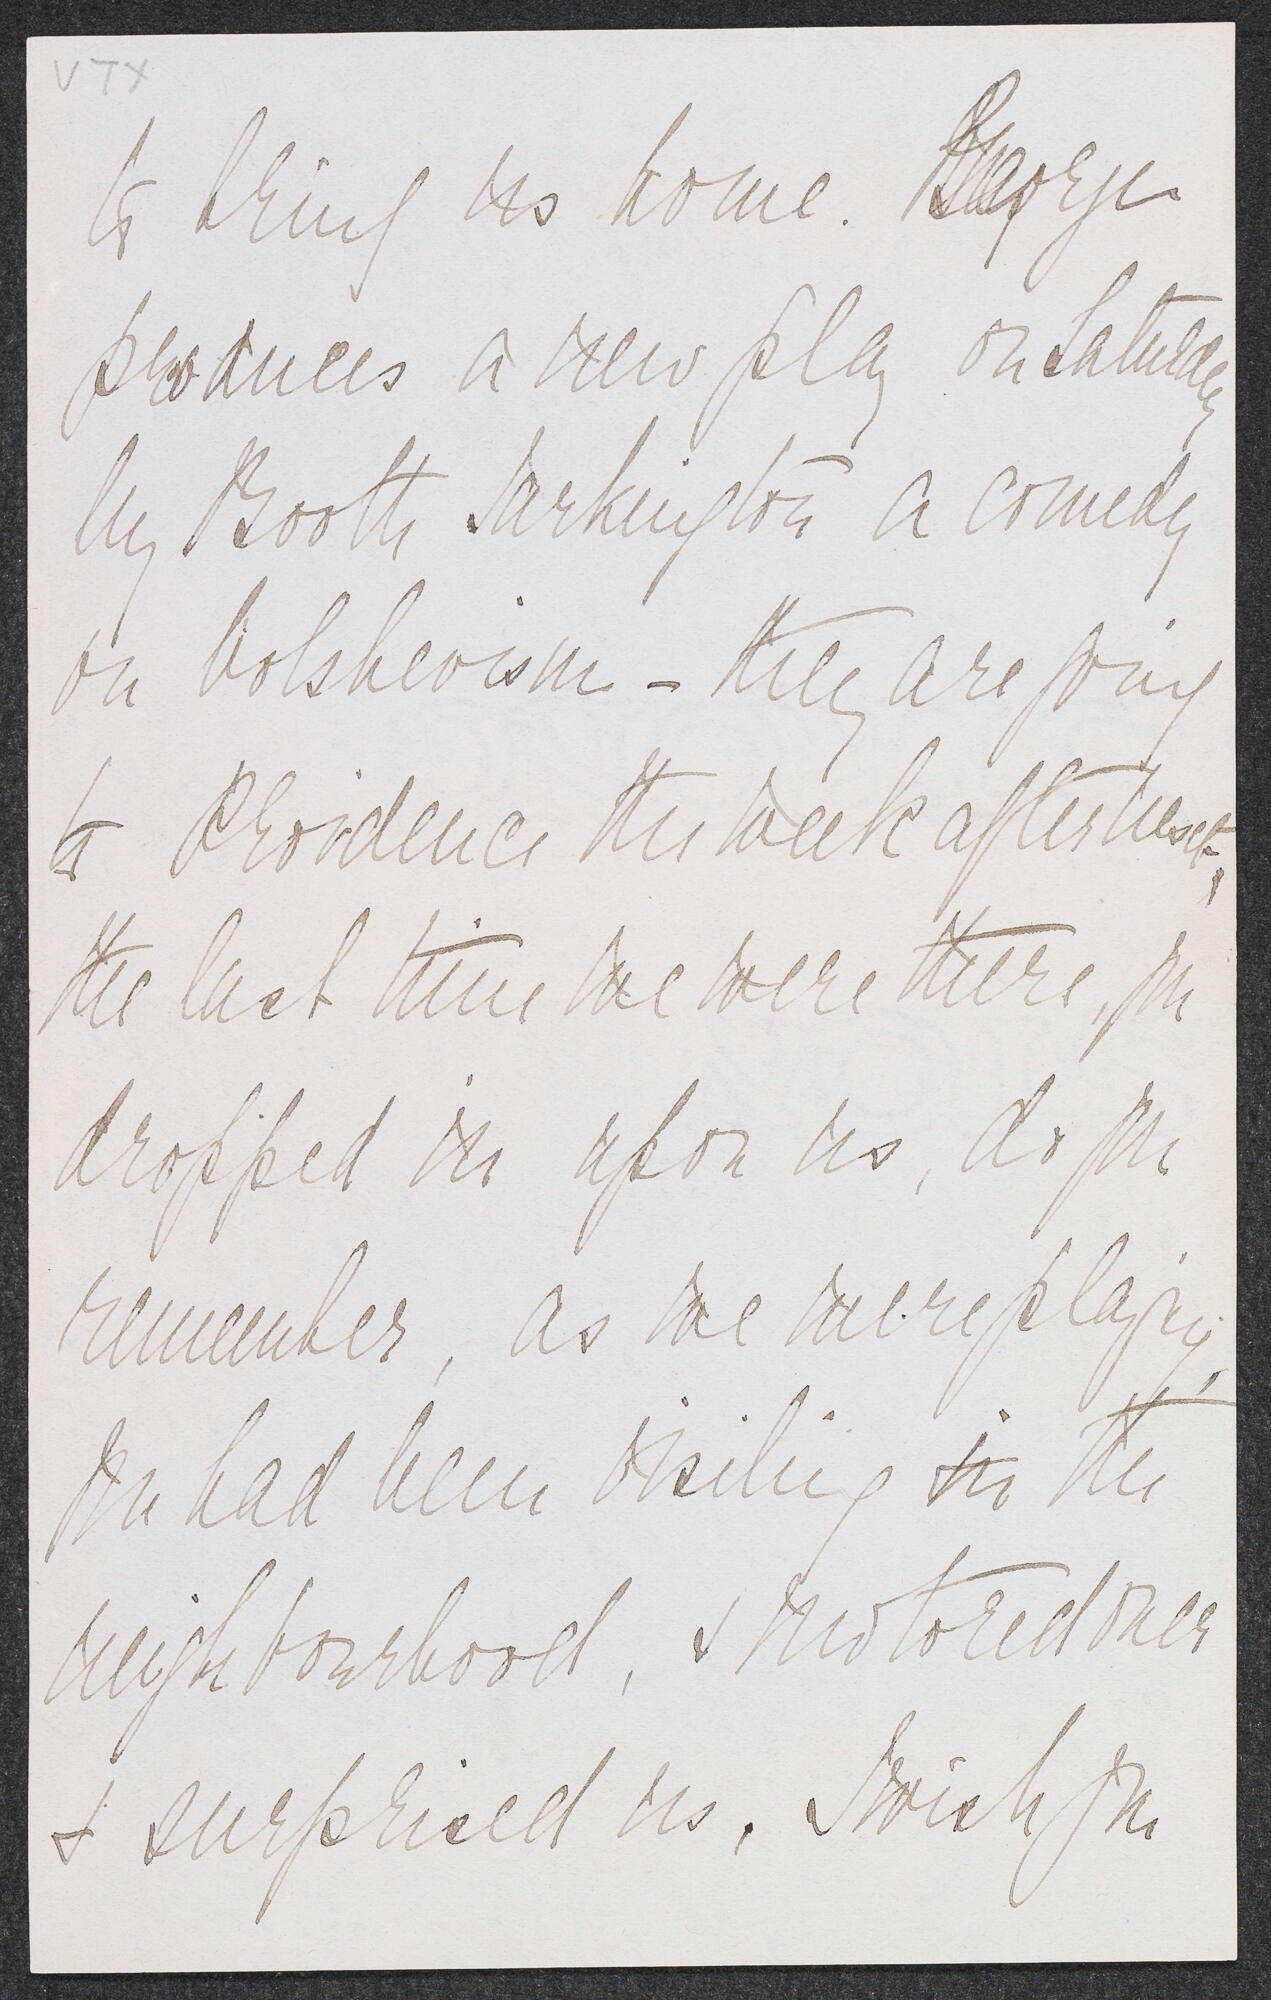 VTX
to bring us home. George
produces a new play on Saturday
by Booth Tarkington a comedy
on bolshevism - they are going
to Providence the week after next,
the last time we were there, you
dropped in upon us, do you
remember, as we were playing,
you had been visiting in the
neighbourhood, & motored over
& surprised us. I wish you